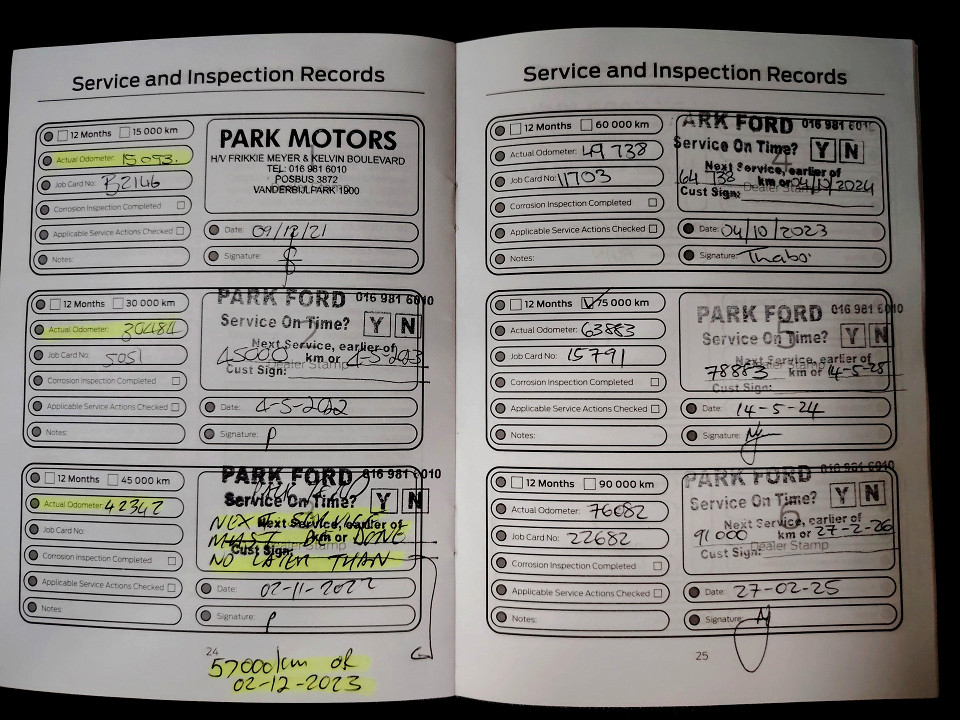 Service and Inspection Records
12 Months 15 000 km
Actual Odometer: 15 093.
Job Card No: B2146
Corrosion Inspection Completed
Applicable Service Actions Checked
Notes:
PARK MOTORS
H/V FRIKKIE MEYER & KELVIN BOULEVARD
TEL: 016 981 6010
POSBUS 3872
VANDERBIJLPARK 1900
Date: 09/12/21
Signature:
12 Months 30 000 km
Actual Odometer: 30484
Job Card No: 5051
Corrosion Inspection Completed
Applicable Service Actions Checked
Notes:
PARK FORD 016 981 6010
Service On Time? Y N
Next Service, earlier of
45000 km or 4-5-2023
Cust Sign:
Dealer Stamp
Date: 4-5-2022
Signature:
12 Months 45 000 km
Actual Odometer: 42342
Job Card No:
Corrosion Inspection Completed
Applicable Service Actions Checked
Notes:
PARK FORD 016 981 6010
Service On Time? Y N
Next Service, earlier of
km or
Cust Sign:
NEXT SERVICE
MUST BE DONE
NO LATER THAN
Date: 02-11-2022
Signature:
24
57000km OR
02-12-2023
Service and Inspection Records
12 Months 60 000 km
Actual Odometer: 49 738
Job Card No: 11703
Corrosion Inspection Completed
Applicable Service Actions Checked
Notes:
ARK FORD 016 981 6010
Service On Time? Y N
4
Next Service, earlier of
64 738 km or 04/10/2024
Cust Sign: Dealer Stamp
Date: 04/10/2023
Signature: Thabo
12 Months 75 000 km
Actual Odometer: 63883
Job Card No: 15791
Corrosion Inspection Completed
Applicable Service Actions Checked
Notes:
PARK FORD 016 981 6010
Service On Time? Y N
5
Next Service, earlier of
78883 km or 14-5-25
Cust Sign:
Dealer Stamp
Date: 14-5-24
Signature:
12 Months 90 000 km
Actual Odometer: 76082
Job Card No: 22682
Corrosion Inspection Completed
Applicable Service Actions Checked
Notes:
PARK FORD 016 981 6010
Service On Time? Y N
6
Next Service, earlier of
91 000 km or 27-2-26
Cust Sign: Dealer Stamp
Date: 27-02-25
Signature:
25